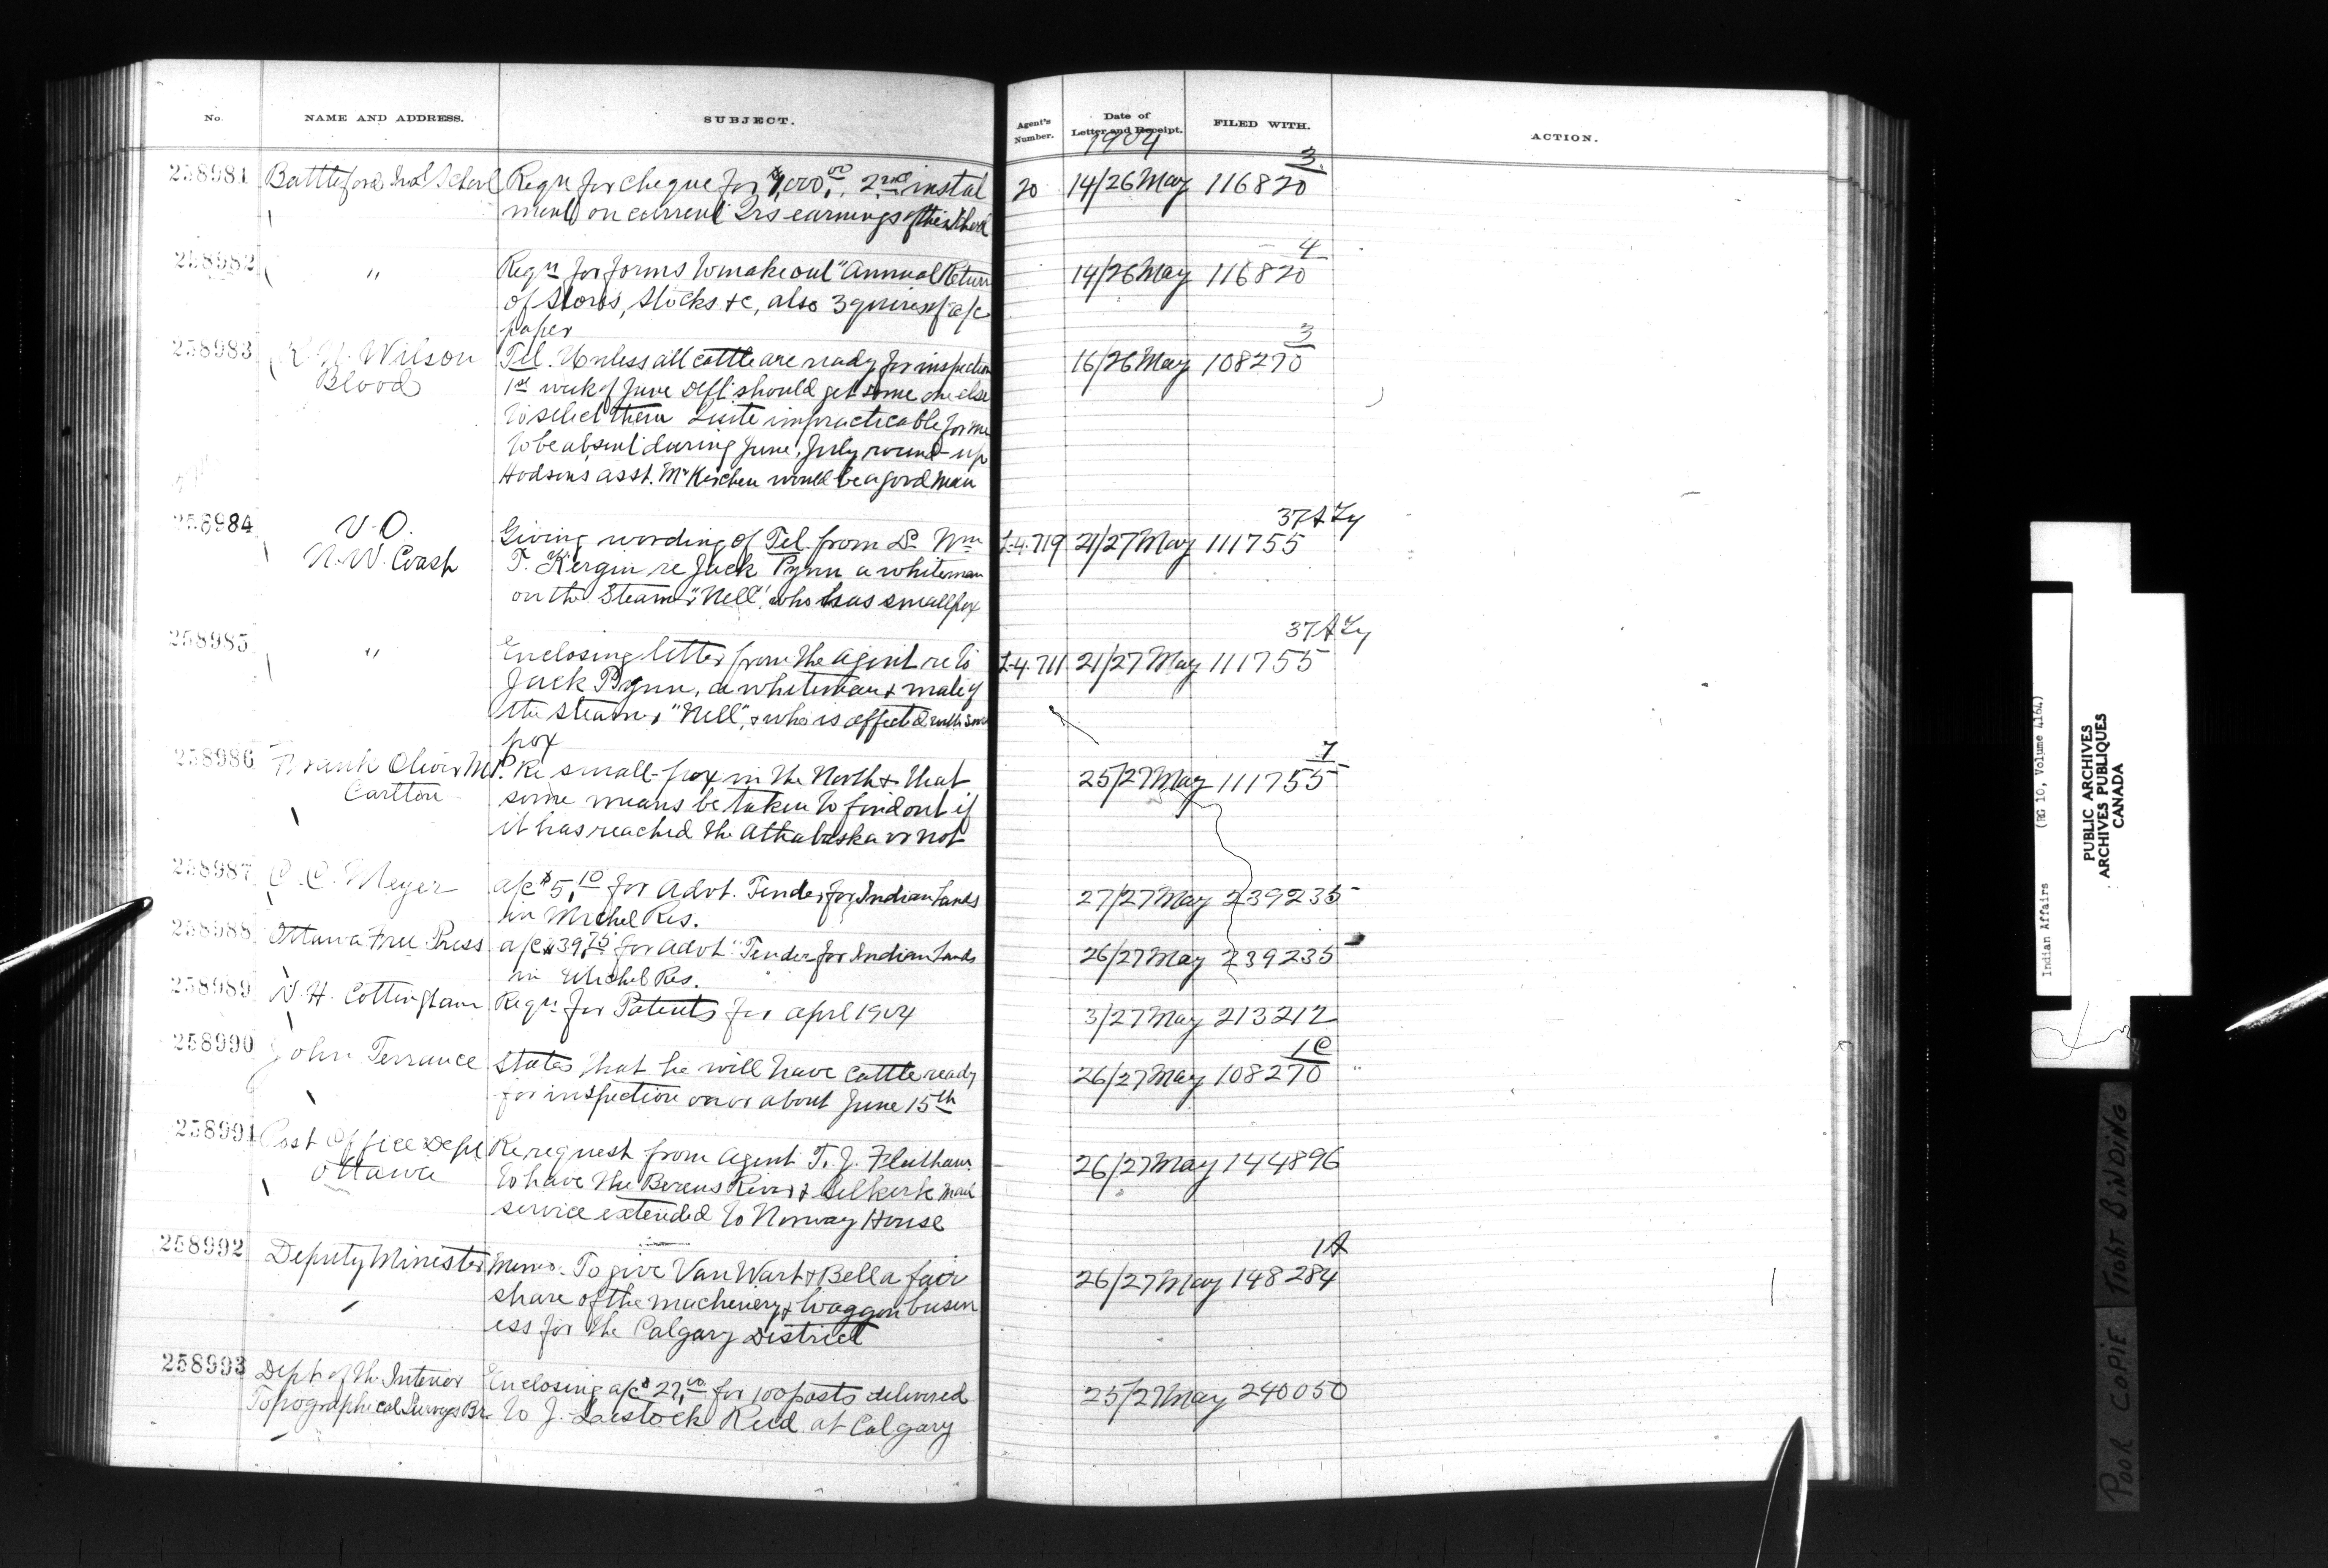 No. NAME AND ADDRESS. SUBJECT. Agent's Number. Date of Letter and Receipt. FILED WITH. ACTION.
1904
3
258981 Battleford Ind'l School Reqn for cheque for $1,000.00, 2nd instal 20 14/26 May 116820
ment on current Qrs earnings of this School
4
258982 " Reqn for forms to make out "Annual Return 14/26 May 116820
of Stores, Stocks &c, also 3 quires of a/c
paper
3
258983 R. N. Wilson Tel. Unless all cattle are ready for inspection 16/26 May 108270
Blood 1st week of June Dept should get some one else
to select them Quite impracticable for me
to be absent during June, July round-up
Hodsons asst. Mr would be a good man
37A
258984 V.O. Giving wording of Tel. from Dr Wm L-4.719 21/27 May 111755
N.W. Coast T. Kergin re Jack Pynn a whiteman
on the Steamer "Nell", who has smallpox
37A
258985 " Enclosing letter from the Agent re to L-4.711 21/27 May 111755
Jack Pynn, a whiteman & mate of
the steamer "Nell", & who is affected with small
pox
7
258986 Frank Oliver M.P. Re small-pox in the North & that 25/27 May 111755
Carlton some means be taken to find out if
it has reached the Athabaska or not
258987 C. C. Meyer a/c $5.10 for Advt. Tender for Indian Lands 27/27 May 239235
in Michel Res.
258988 Ottawa Free Press a/c $39.75 for Advt "Tender for Indian Lands 26/27 May 239235
in Michel Res.
258989 W. H. Cottingham Reqn for Patents for April 1904 3/27 May 213212
1C
258990 John Terrance States that he will have cattle ready 26/27 May 108270
for inspection on or about June 15th
258991 Post Office Dept Re request from Agent T. J. Fleetham 26/27 May 144896
Ottawa to have the Berens River & Selkirk mail
service extended to Norway House
1A
258992 Deputy Minister Memo. To give Van Wart & Bell a fair 26/27 May 148284
share of the machinery & waggon busin
ess for the Calgary District
258993 Dept. of the Interior Enclosing a/c $27.00 for 100 posts delivered 25/27 May 240050
Topographical Surveys Br. to J. Lestock Reid at Calgary
Indian Affairs (RG 10, Volume 4164)
PUBLIC ARCHIVES
ARCHIVES PUBLIQUES
CANADA
POOR COPIE TIGHT BINDING